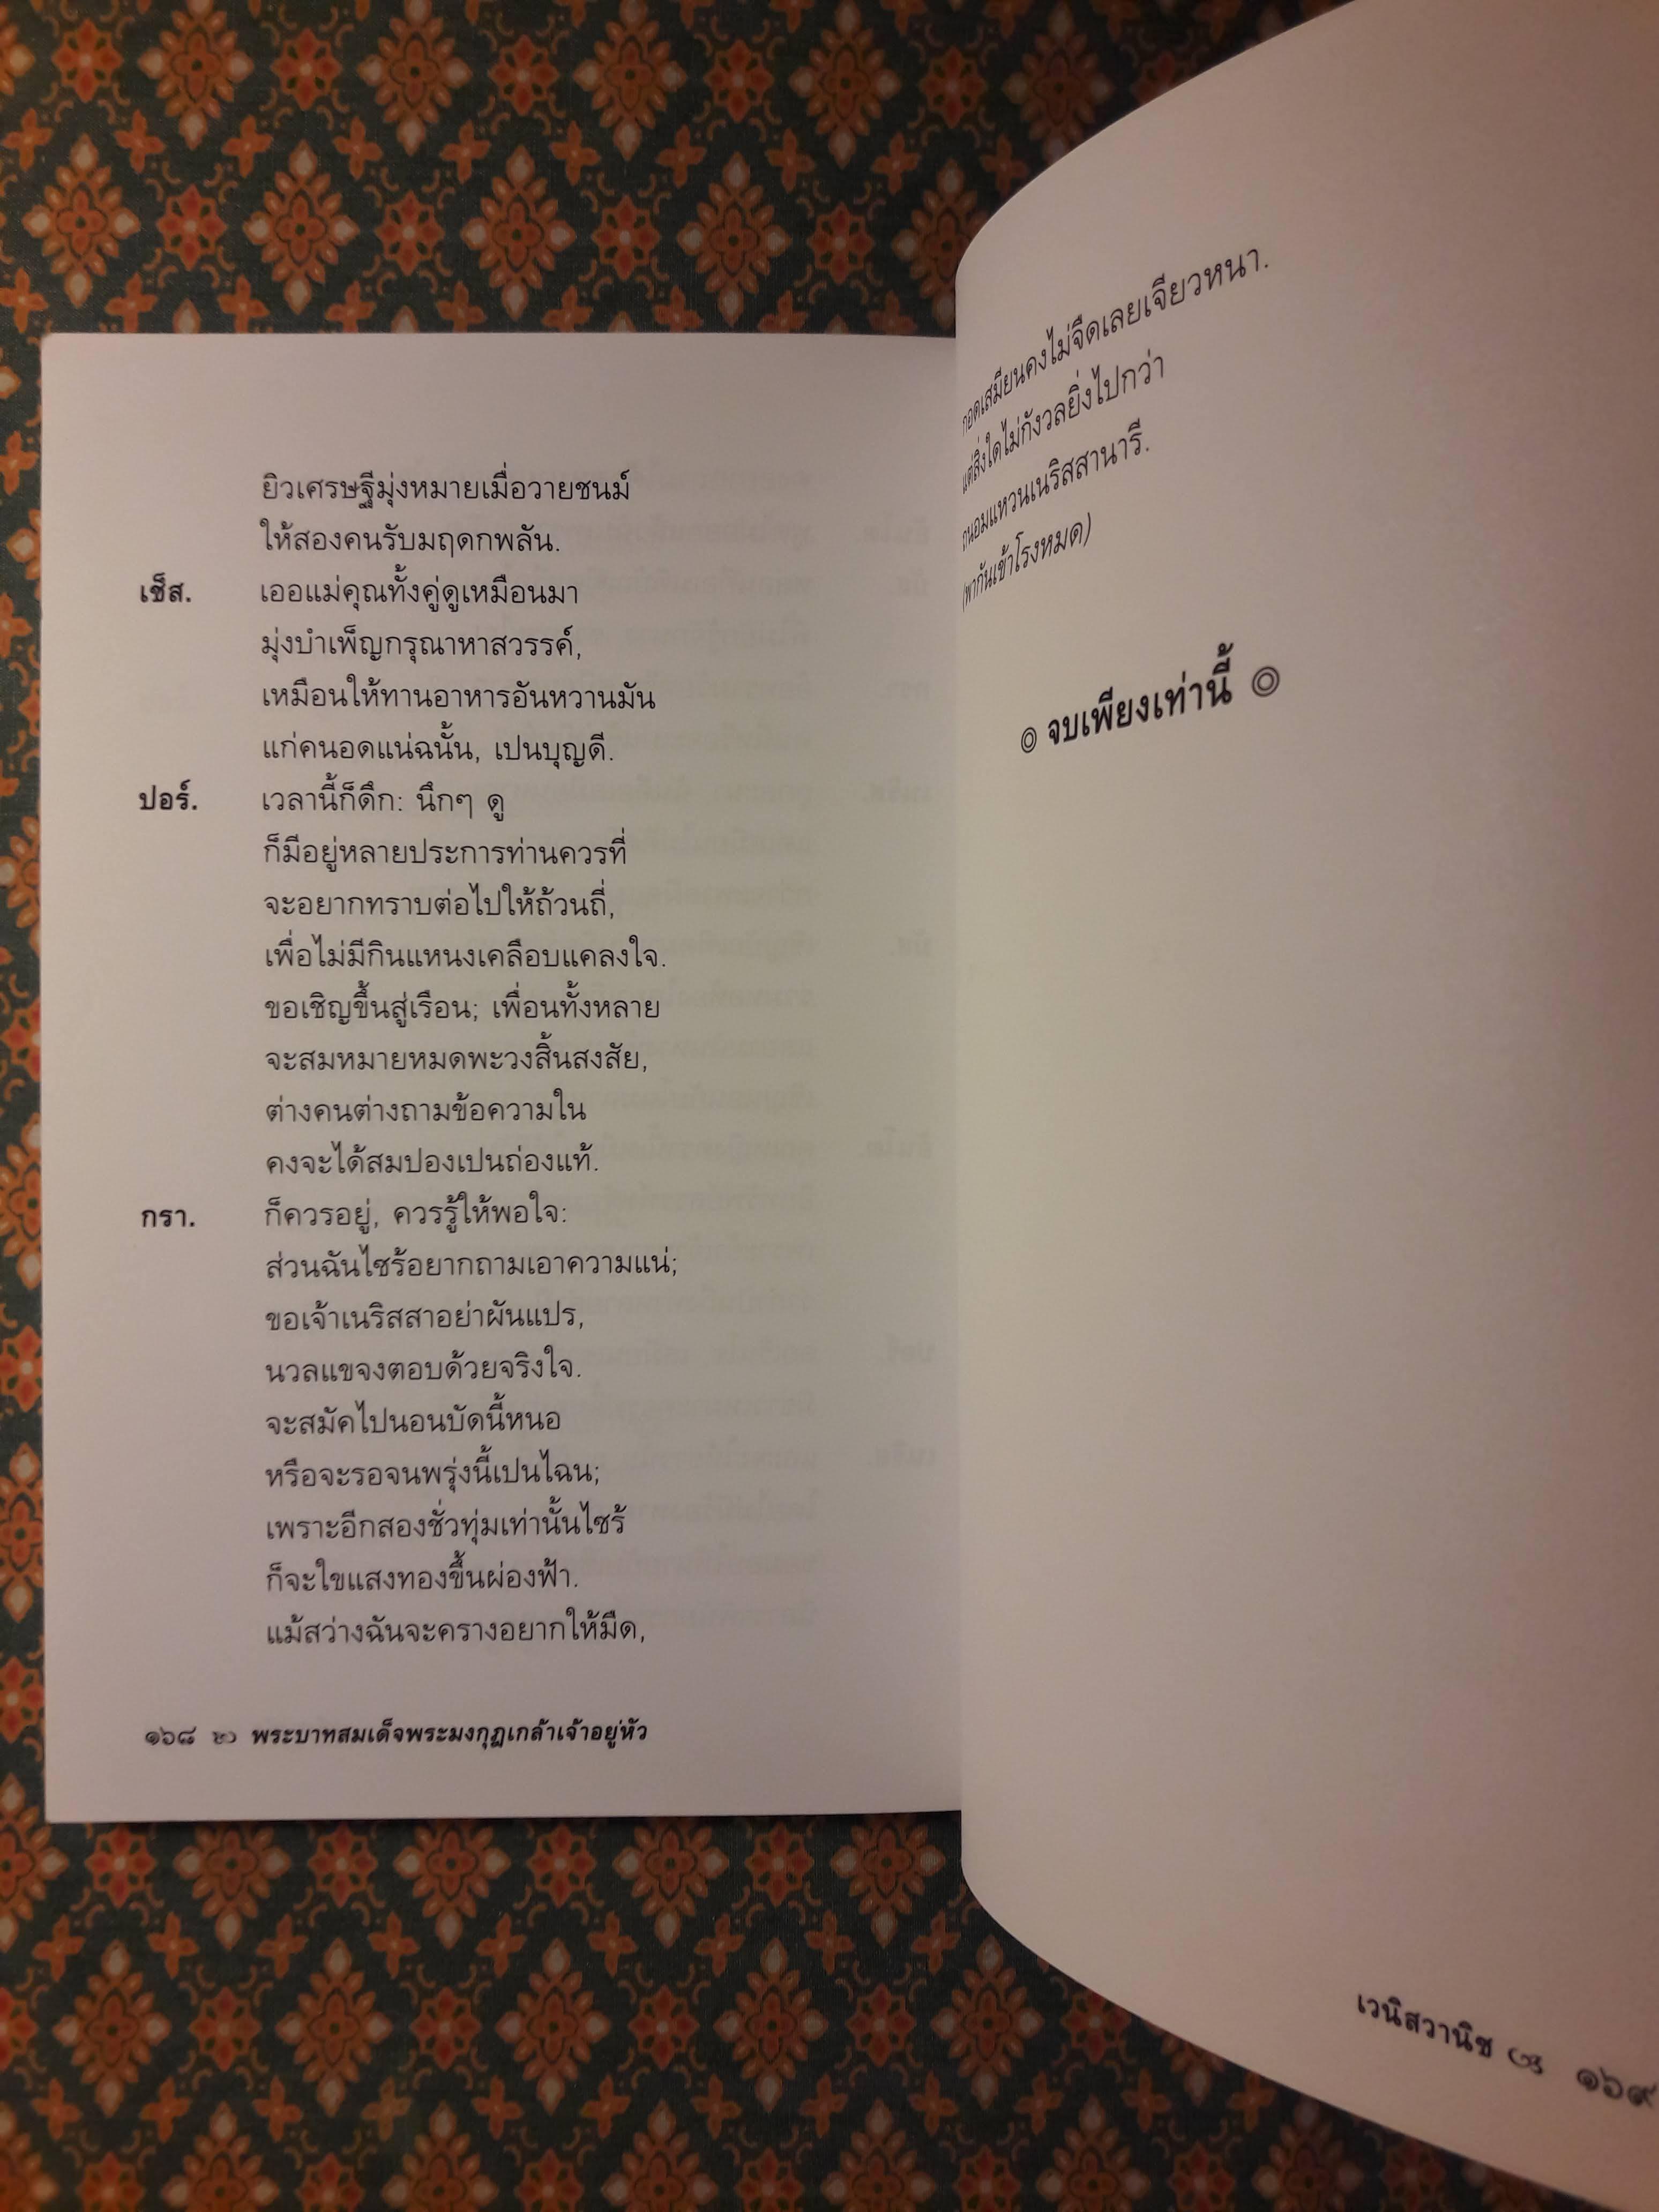 ยิวเศรษฐีมุ่งหมายเมื่อวายชนม์
ให้สองคนรับมฤดกพลัน.
เช็ส. เออแม่คุณทั้งคู่ดูเหมือนมา
มุ่งบำเพ็ญกรุณาหาสวรรค์,
เหมือนให้ทานอาหารอันหวานมัน
แก่คนอดแน่ฉนั้น, เปนบุญดี.
ปอร์. เวลานี้ก็ดึก: นึกๆ ดู
ก็มีอยู่หลายประการท่านควรที่
จะอยากทราบต่อไปให้ถ้วนถี่,
เพื่อไม่มีกินแหนงเคลือบแคลงใจ.
ขอเชิญขึ้นสู่เรือน; เพื่อนทั้งหลาย
จะสมหมายหมดพะวงสิ้นสงสัย,
ต่างคนต่างถามข้อความใน
คงจะได้สมปองเปนถ่องแท้.
กรา. ก็ควรอยู่, ควรรู้ให้พอใจ:
ส่วนฉันไซร้อยากถามเอาความแน่;
ขอเจ้าเนริสสาอย่าผันแปร,
นวลแขจงตอบด้วยจริงใจ.
จะสมัคไปนอนบัดนี้หนอ
หรือจะรอจนพรุ่งนี้เปนไฉน;
เพราะอีกสองชั่วทุ่มเท่านั้นไซร้
ก็จะใขแสงทองขึ้นผ่องฟ้า.
แม้สว่างฉันจะครางอยากให้มืด,
๑๖๘ พระบาทสมเด็จพระมงกุฎเกล้าเจ้าอยู่หัว
กอดเสมียนคงไม่จืดเลยเจียวหนา.
แต่สิ่งใดไม่กังวลยิ่งไปกว่า
ถนอมแหวนเนริสสานารี.
(พากันเข้าโรงหมด)
๏ จบเพียงเท่านี้ ๏
เวนิสวานิช ๑๖๙